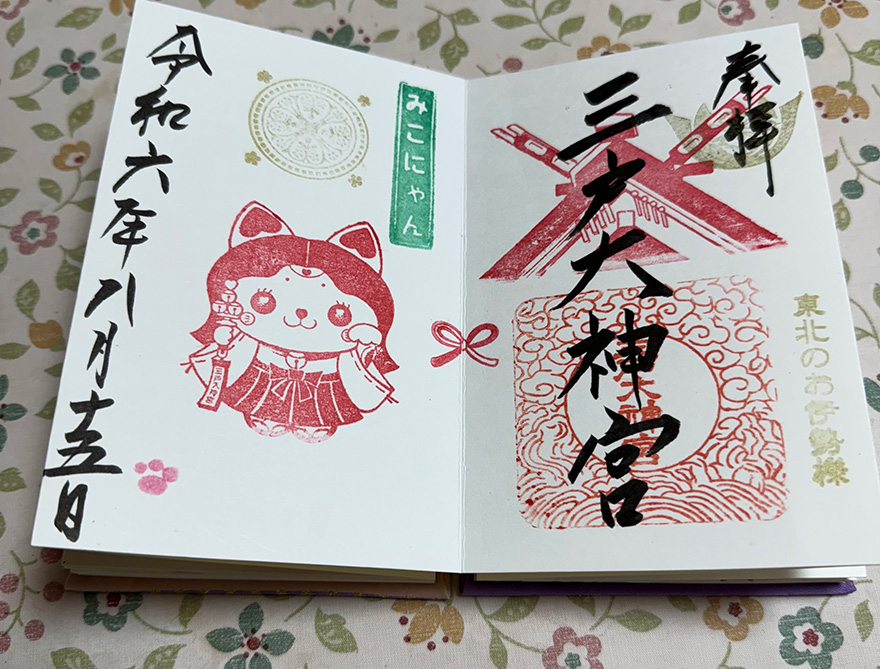 奉拝
三戸大神宮
東北のお伊勢様
みこにゃん
令和六年八月十五日
三戸大神宮